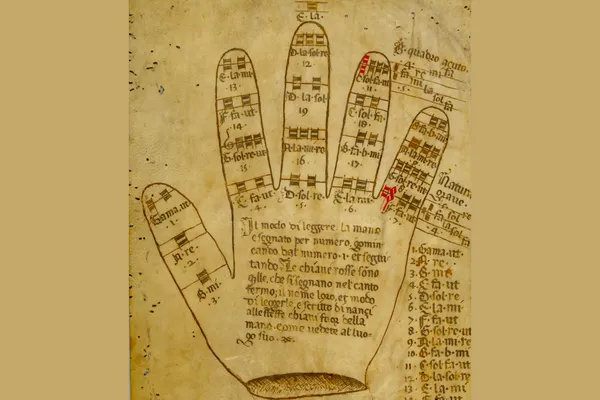 E·la·
D·la·sol·re
12
E·la·mi·
·13·
C·sol·fa·ut
11
F·fa·ut
·14·
D·la·sol
19
C·sol·fa·
·18·
G·sol·re·ut
15
A·la·mi·re
16·
B·fa·b·mi
·17·
C·fa·ut
·4·
D·sol·re·
·5·
E·la·mi·
·6·
F·fa·ut
·7·
Gama·ut
·1·
A·re·
·2·
B·mi·
·3·
Il modo di leggere la mano
è segnato per numero, comin
cando dal numero·1·et segui
tando. Le chiave rosse sono
quelle, che si segnano nel canto
fermo; il nome loro, et modo
di leggerle, è scritto di nanzi
alle stesse chiavi fuor della
mano come vedete al luo
go suo·
B·quadro acuto·
Natura
grave·
1·Gama·ut·
2·A·re·
3·B·mi·
4·C·fa·ut
5·D·sol·re·
6·E·la·mi·
7·F·fa·ut
8·G·sol·re·ut
9·A·la·mi·re
10·B·fa·b·mi
11·C·sol·fa·ut
12·D·la·sol·re
13·E·la·mi